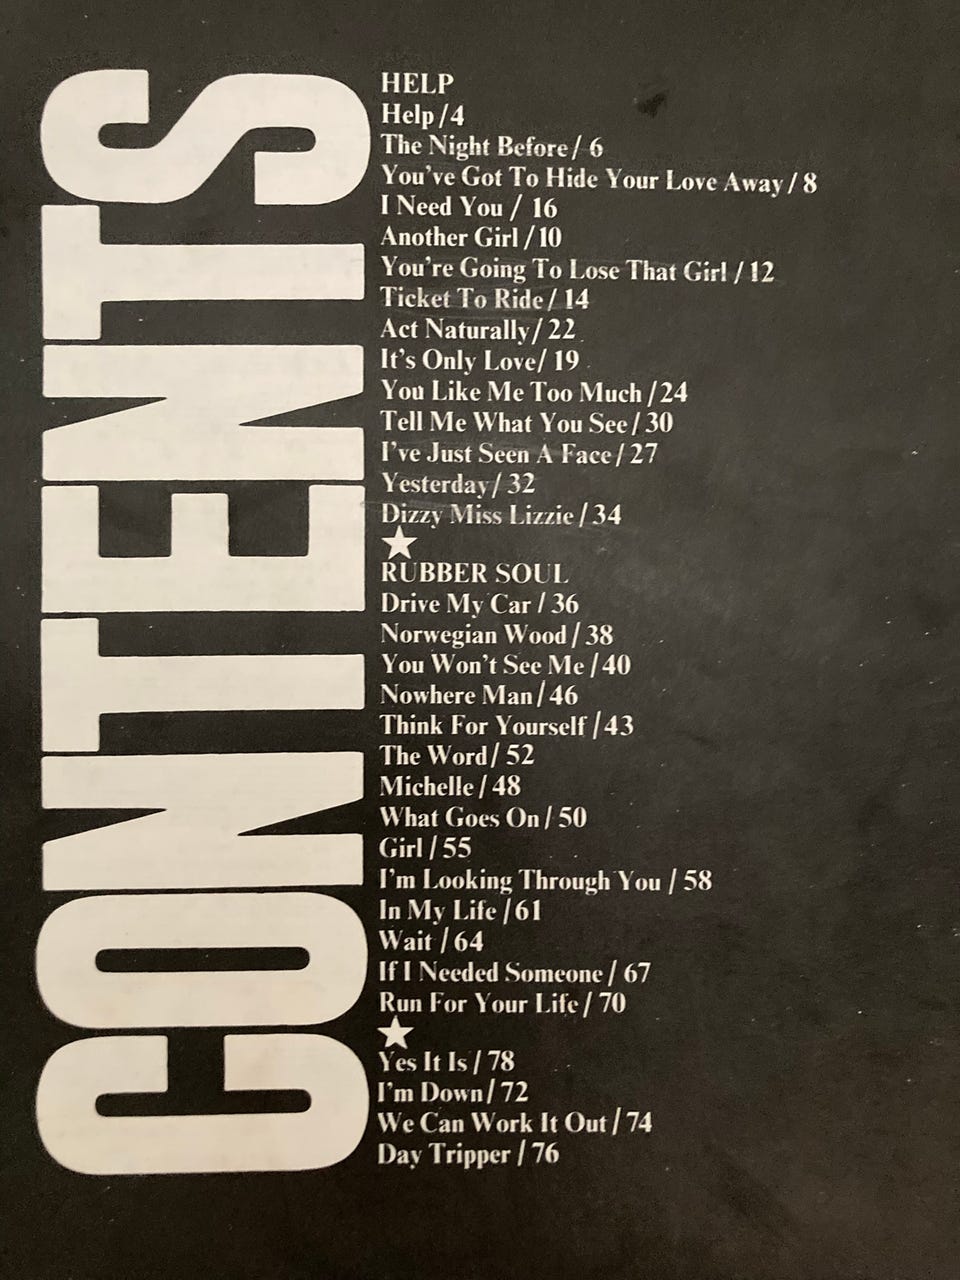 CONTENTS
HELP
Help/4
The Night Before/ 6
You've Got To Hide Your Love Away/ 8
I Need You / 16
Another Girl /10
You're Going To Lose That Girl / 12
Ticket To Ride / 14
Act Naturally/ 22
It's Only Love/ 19
You Like Me Too Much /24
Tell Me What You See/ 30
I've Just Seen A Face/ 27
Yesterday/ 32
Dizzy Miss Lizzie / 34
★
RUBBER SOUL
Drive My Car / 36
Norwegian Wood/ 38
You Won't See Me /40
Nowhere Man/ 46
Think For Yourself /43
The Word/ 52
Michelle / 48
What Goes On/ 50
Girl / 55
I'm Looking Through You / 58
In My Life /61
Wait / 64
If I Needed Someone / 67
Run For Your Life/ 70
★
Yes It Is / 78
I'm Down/ 72
We Can Work It Out / 74
Day Tripper / 76